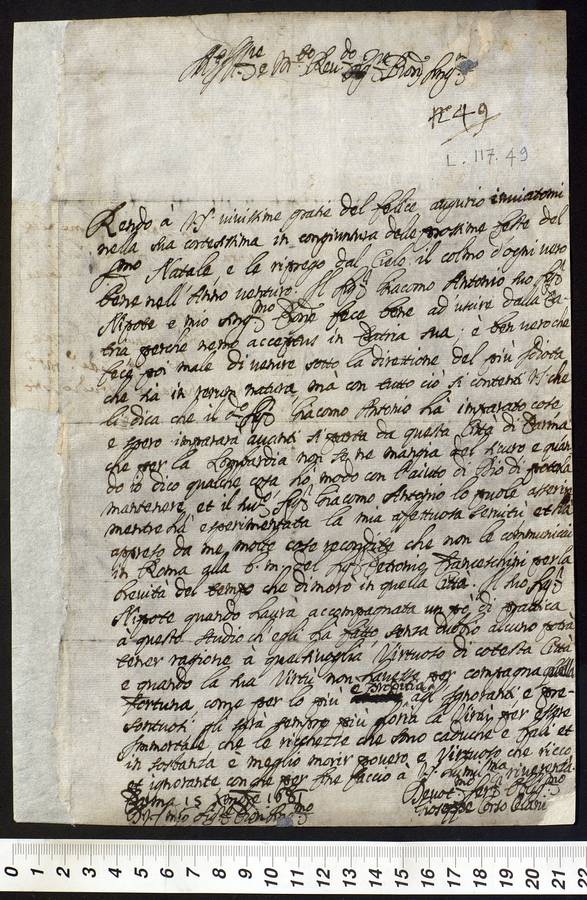 Nº 49
L. 117.49
Rendo à V.S. vivissime gratie del felice augurio inviatomi
nella sua cortesissima in congiuntura delle prossime feste del
SSmo Natale e le riprego dal Cielo il colmo d'ogni vero
bene nell'Anno venturo. Il Sigr Giacomo Antonio suo Sigr
Nipote e mio Sigre fece bene ad'uscire dalla Pa-
tria perche nemo acceptus in Patria sua; è ben vero che
fece poi male di venire sotto la direttione del più Idiota
che sia in rerum natura, ma con tutto ciò si contenti V.S. che
li dica che il Sigr Giacomo Antonio ha imparato cose
e spero imparerà avanti si parta da questa Città di Parma
che per la Lombardia non se ne mangia del sicuro e quan
do io dico qualche cosa hò modo con l'aiuto di Dio di poterla
mantenere, et il Sigr Giacomo Antonio lo puole asserire
mentre hà esperimentata la mia affettuosa servitù et hà
appreso da me molte cose recondite che non le communicai
in Roma al Sigr Petronio Franceschini per la
brevità del tempo che dimorò in quella Città. Il suo Sigr
Nipote quando haurà accompagnata un pò di pratica
à questi studii ch'egli hà fatto senza dubio alcuno potrà
tener ragione à qualsivoglia Virtuoso di cotesta Città
e quando la sua Virtù non havesse per compagna quella
fortuna come per lo più è propitia agl'Ignoranti e pre-
sontuosi gli sarà sempre più gloria la Virtù per essere
Immortale, che le ricchezze che sono caduche e frali et
in sostanza è meglio morir povero e Virtuoso che ricco
et ignorante con che per fine faccio à V.S. humma riverenza.
Parma 15 1681
Devotmo Serv Obligmo
Gioseppe Corso Celani